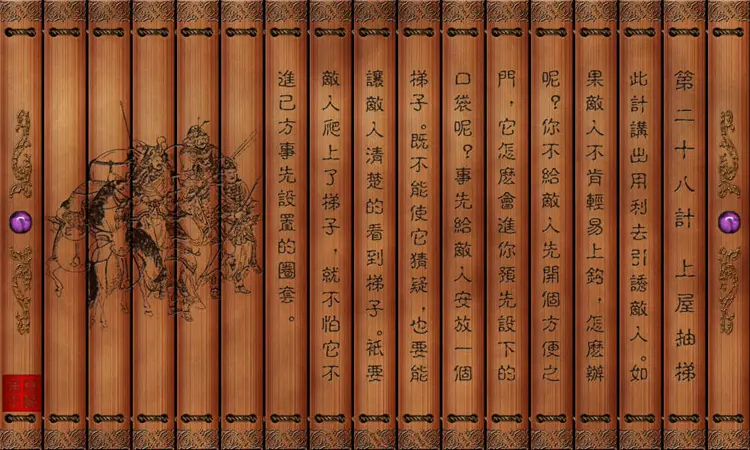 第二十八計 上屋抽梯
此計講出用利去引誘敵人。如
果敵人不肯輕易上鉤，怎麼辦
呢？你不給敵人先開個方便之
門，它怎麼會進你預先設下的
口袋呢？事先給敵人安放一個
梯子。既不能使它猜疑，也要能
讓敵人清楚的看到梯子。祇要
敵人爬上了梯子，就不怕它不
進己方事先設置的圈套。